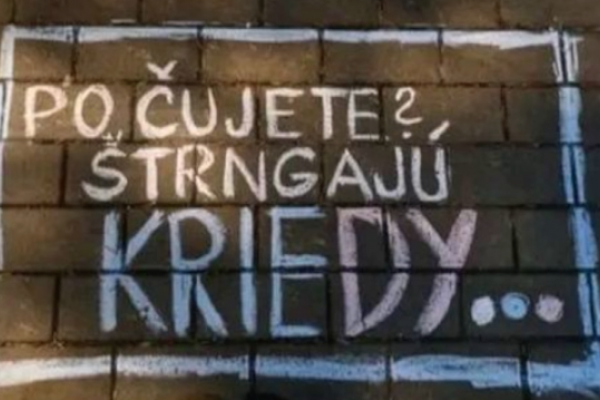 PO ČUJETE?
ŠTRNGAJÚ
KRIEDY...